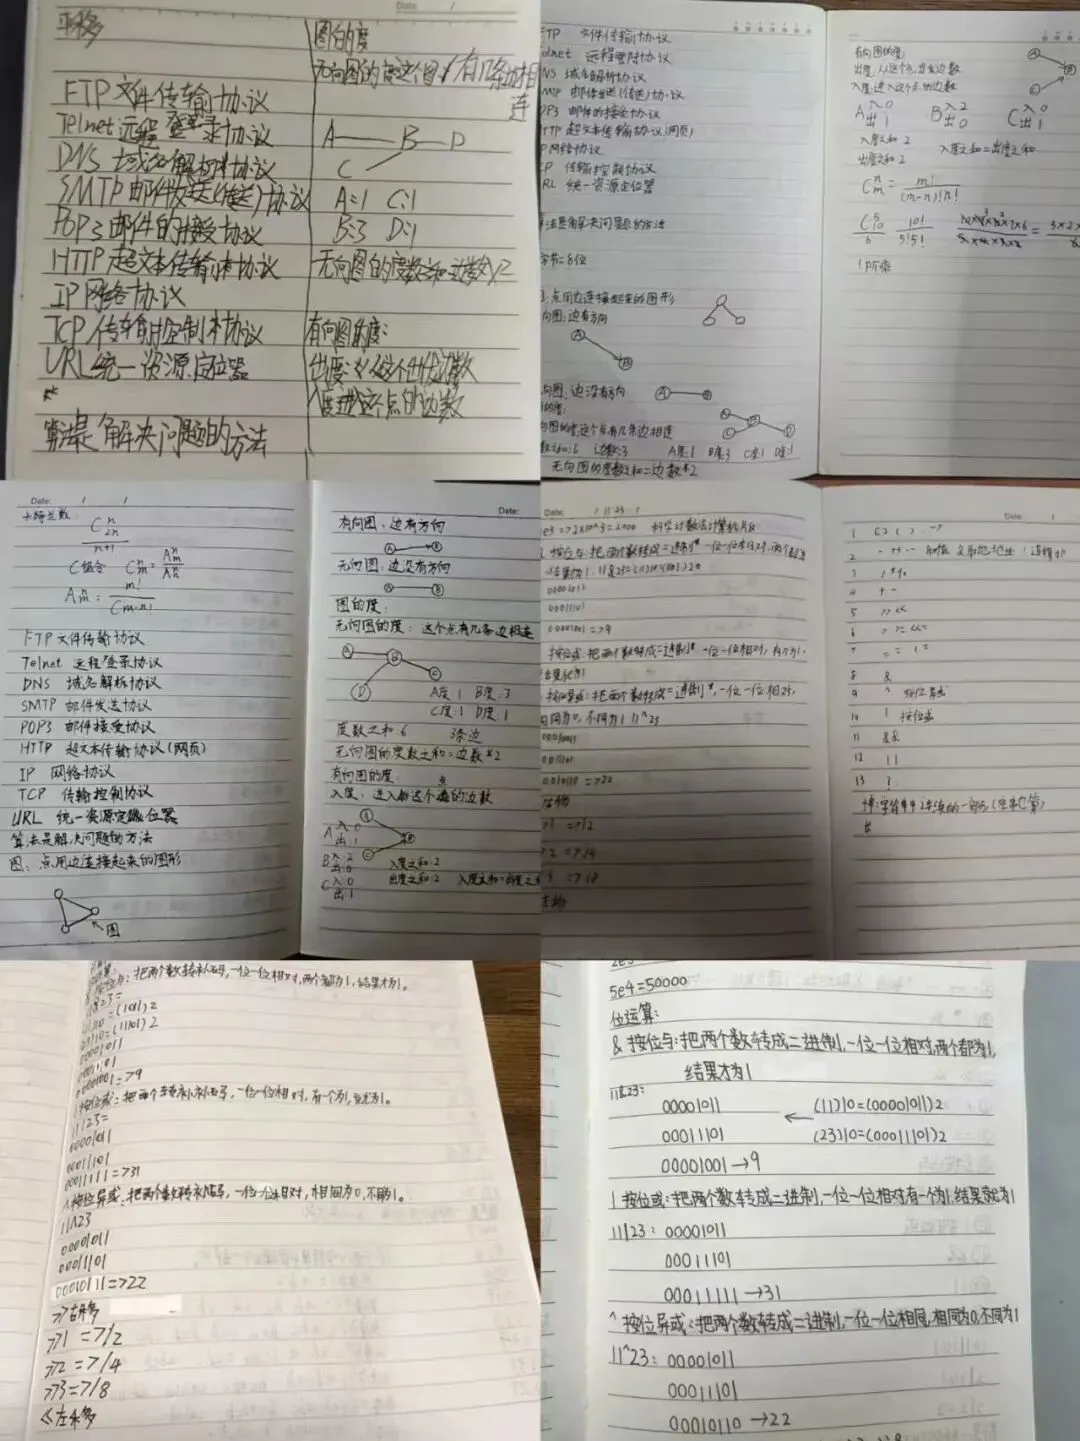 平移
FTP 文件传输协议
Telnet 远程登录协议
DNS 域名解析协议
SMTP 邮件发送(推送)协议
POP3 邮件的接受协议
HTTP 超文本传输协议
IP 网络协议
TCP 传输控制协议
URL 统一资源定位器
算法是解决问题的方法
Date /
图的度
连
A B D
C
A:1 C:1
B:3 D:1
无向图的度数之和=边数×2
有向图的度:
入度进这个点的边数
TP 文件传输协议
elnet 远程登陆协议
NS 域名解析协议
MTP 邮件发送(传送)协议
OP3 邮件的接受协议
HTTP 超文本传输协议(网页)
P 网络协议
CP 传输控制协议
RL 统一资源定位器
算法是解决问题的方法
字节=8位
点用边连接起来的图形
向图:边有方向
A
B
向图:边没有方向 A B
的度:
向图的度这个点有几条边相连
数之和:6 边数:3 A度:1 B度:3 C度:1 D度:1
无向图的度数之和=边数*2
有向图的度:
出度:从这个点出发边数
入度:进入这个点的边数
A 入0 出1 B 入2 出0 C 入0 出1
入度之和 2 入度之和=出度之和
出度之和 2
C n m = m! / (m-n)!n!
C 5 10 10! / 5!5!
Date: / /
卡特兰数
C n 2n / n+1
C组合 C n m = A n m / A n n
FTP 文件传输协议
Telnet 远程登录协议
DNS 域名解析协议
SMTP 邮件发送协议
POP3 邮件接受协议
HTTP 超文本传输协议(网页)
IP 网络协议
TCP 传输控制协议
URL 统一资源定位器
算法是解决问题的方法
图:点用边连接起来的图形
图
Date:
有向图:边有方向
A B
无向图:边没有方向
A B
图的度:
无向图的度:这个点有几条边相连
A B C D
A度:1 B度:3
C度:1 D度:1
度数之和:6 3条边
无向图的度数之和=边数*2
有向图的度: 点
入度:进入的这个的边数
A 入:0 出:1
B 入:2 出:0
C 入:0 出:1
入度之和:2
出度之和:2 入度之和=
e3 =>2x10^3=2000 科学计数法
00001011
00011101
00001001 =>9
按位或:把两个数转成二进制 一位一位相对,有个为1,
结果就为1
按位异或:把两个数转成二进制,一位一位相对,
相同为0,不同为1 11^23
00001011
0011101
0010110 =>22
>1 =>/2
>2 =>/4
=>/8
Date: /
3 / * %
4 + -
5 >> <<
8 &
9 ^ 按位异或
10 | 按位或
11 &&
12 ||
按位与:把两个数转补码,一位一位相对,两个都为1,结果才为1。
00001011
00011101
00001001=>9
11|23=
00001011
00011101
00011111=>31
^按位异或:把两个数转补码,一位一位相对,相同为0,不同为1。
11^23
00001011
00011101
00010111=>22
>>右移
>>1 =>/2
>>2 =>/4
>>3=>/8
<<左移
2e3
5e4=50000
位运算:
& 按位与:把两个数转成二进制,一位一位相对,两个都为1,
结果才为1
11&23:
00001011 ← (11)10=(00001011)2
00011101 (23)10=(00011101)2
00001001→9
| 按位或:把两个数转成二进制,一位一位相对有一个为1,结果就为1
11|23: 00001011
00011101
00011111→31
^ 按位异或:把两个数转成二进制,一位一位相同,相同为0,不同为1
11^23: 00001011
00011101
00010110→22